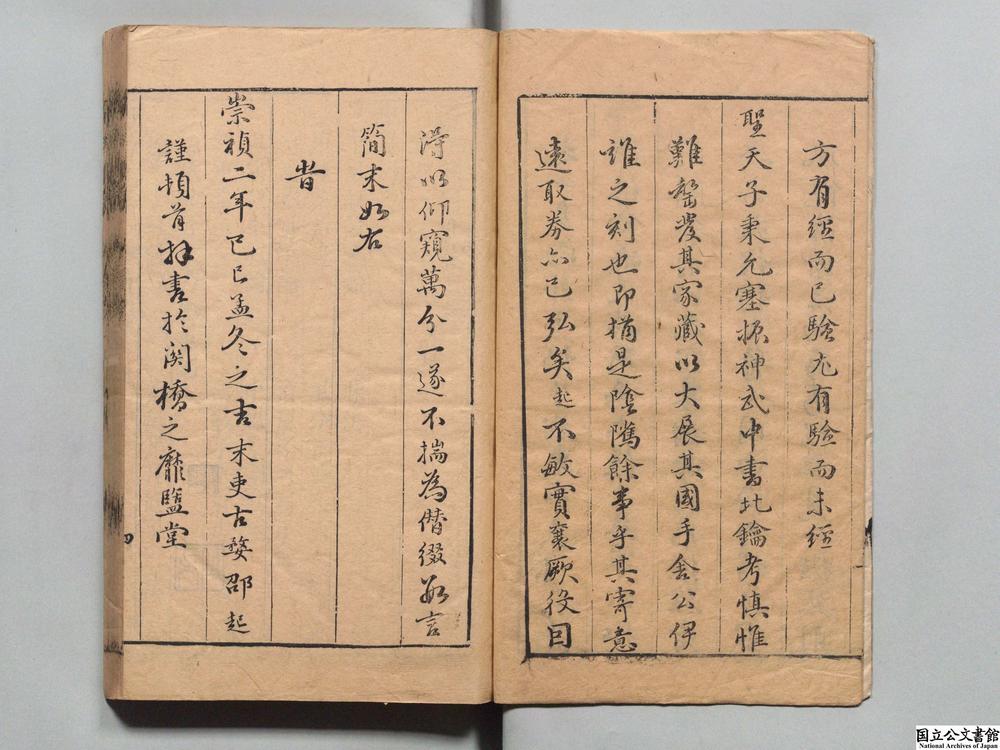 方有經而已驗尤有驗而未經
聖天子秉允塞振神武中書北鑰考慎惟
難罄發其家藏以大展其國手舍公伊
誰之刻也即猶是陰隲餘事乎其寄意
遠取券亦已弘矣起不敏實襄厥役因
得以仰窺萬分一遂不揣為僭綴數言
簡末如右
旹
崇禎二年己巳孟冬之吉末吏古婺邵起
謹頓首拜書於関橋之靡盬堂
四
国立公文書館
National Archives of Japan